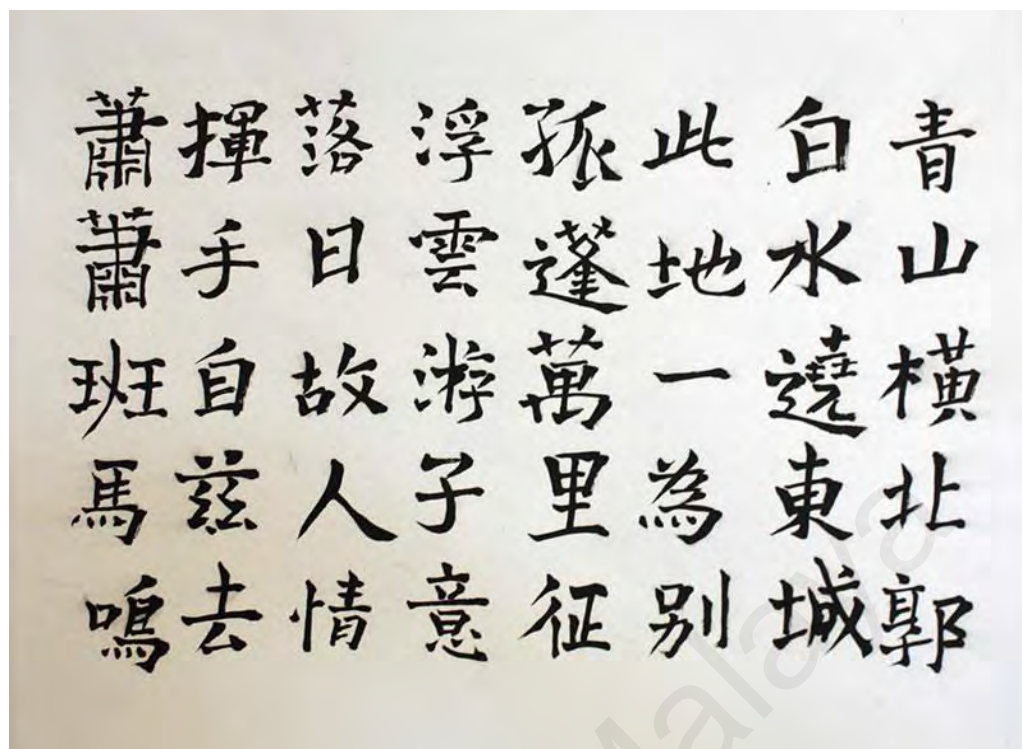 青山橫北郭
白水遶東城
此地一為別
孤蓬萬里征
浮雲游子意
落日故人情
揮手自茲去
蕭蕭班馬鳴
Malaya